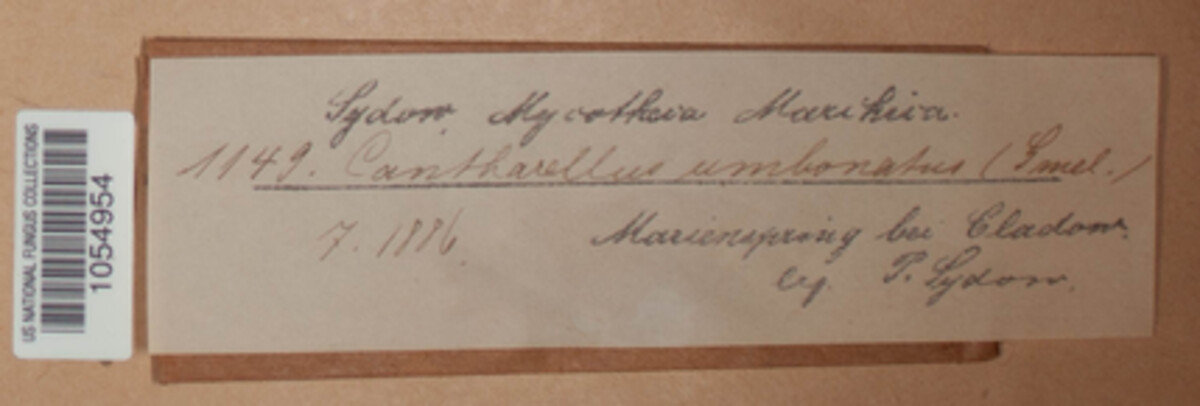 US NATIONAL FUNGUS COLLECTIONS
1054954
Sydow, Mycotheca Marchica.
1149. Cantharellus umbonatus (Gmel.)
7. 1886.
Marienspring bei Cladow.
leg. P. Sydow.